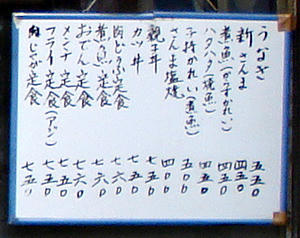 うなぎ 五五〇
新さんま 四五〇
煮魚(子がれい) 四五〇
ハタハタ(焼魚) 四五〇
子持かれい(煮魚) 五〇〇
さんま塩焼 四〇〇
親子丼 七五〇
カツ丼 七五〇
肉どうふ定食 七六〇
煮魚定食 七六〇
おでん定食 七六〇
メンチ定食 七五〇
フライ定食(アジ) 七五〇
肉じゃが定食 七五〇